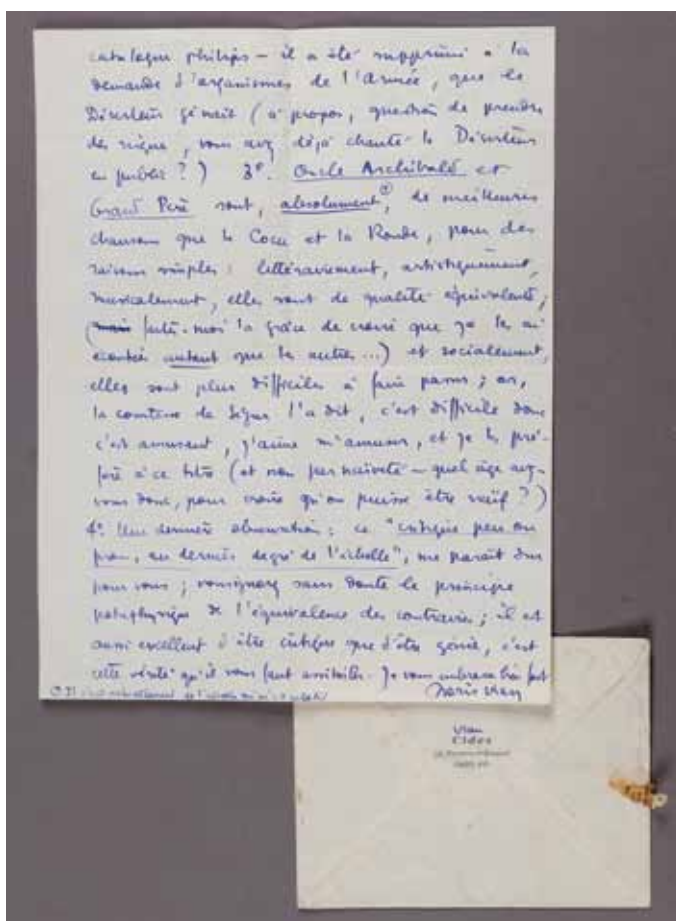 catalogue philips – il a été supprimé à la
demande d'organismes de l'Armée, que le
Déserteur gênait (à propos, question de prendre
des risques, vous avez déjà chanté le Déserteur
en public ?) 3°. Oncle Archibald et
Grand Père sont, absolument, de meilleures
chansons que le Cocu et la Ronde, pour des
raisons simples : littérairement, artistiquement,
musicalement, elles sont de qualité équivalente,
(mais faites-moi la grâce de croire que je les ai
écoutées autant que les autres...) et socialement,
elles sont plus difficiles à faire passer ; or,
la comtesse de Ségur l'a dit, c'est difficile donc
c'est amusant, j'aime m'amuser, et je les pré-
fère à ce titre (et non par naïveté – quel âge avez-
vous donc, pour croire qu'on puisse être naïf ?)
4°. Une dernière observation : ce "critique peu ou
prou, au dernier degré de l'échelle", me paraît dur
pour vous ; vous ignorez sans doute le principe
pataphysique de l'équivalence des contraires ; il est
aussi excellent d'être critique que d'être génie, c'est
cette vérité qu'il vous faut assimiler. Je vous embrasse très fort
Boris Vian
Vian
Cidex